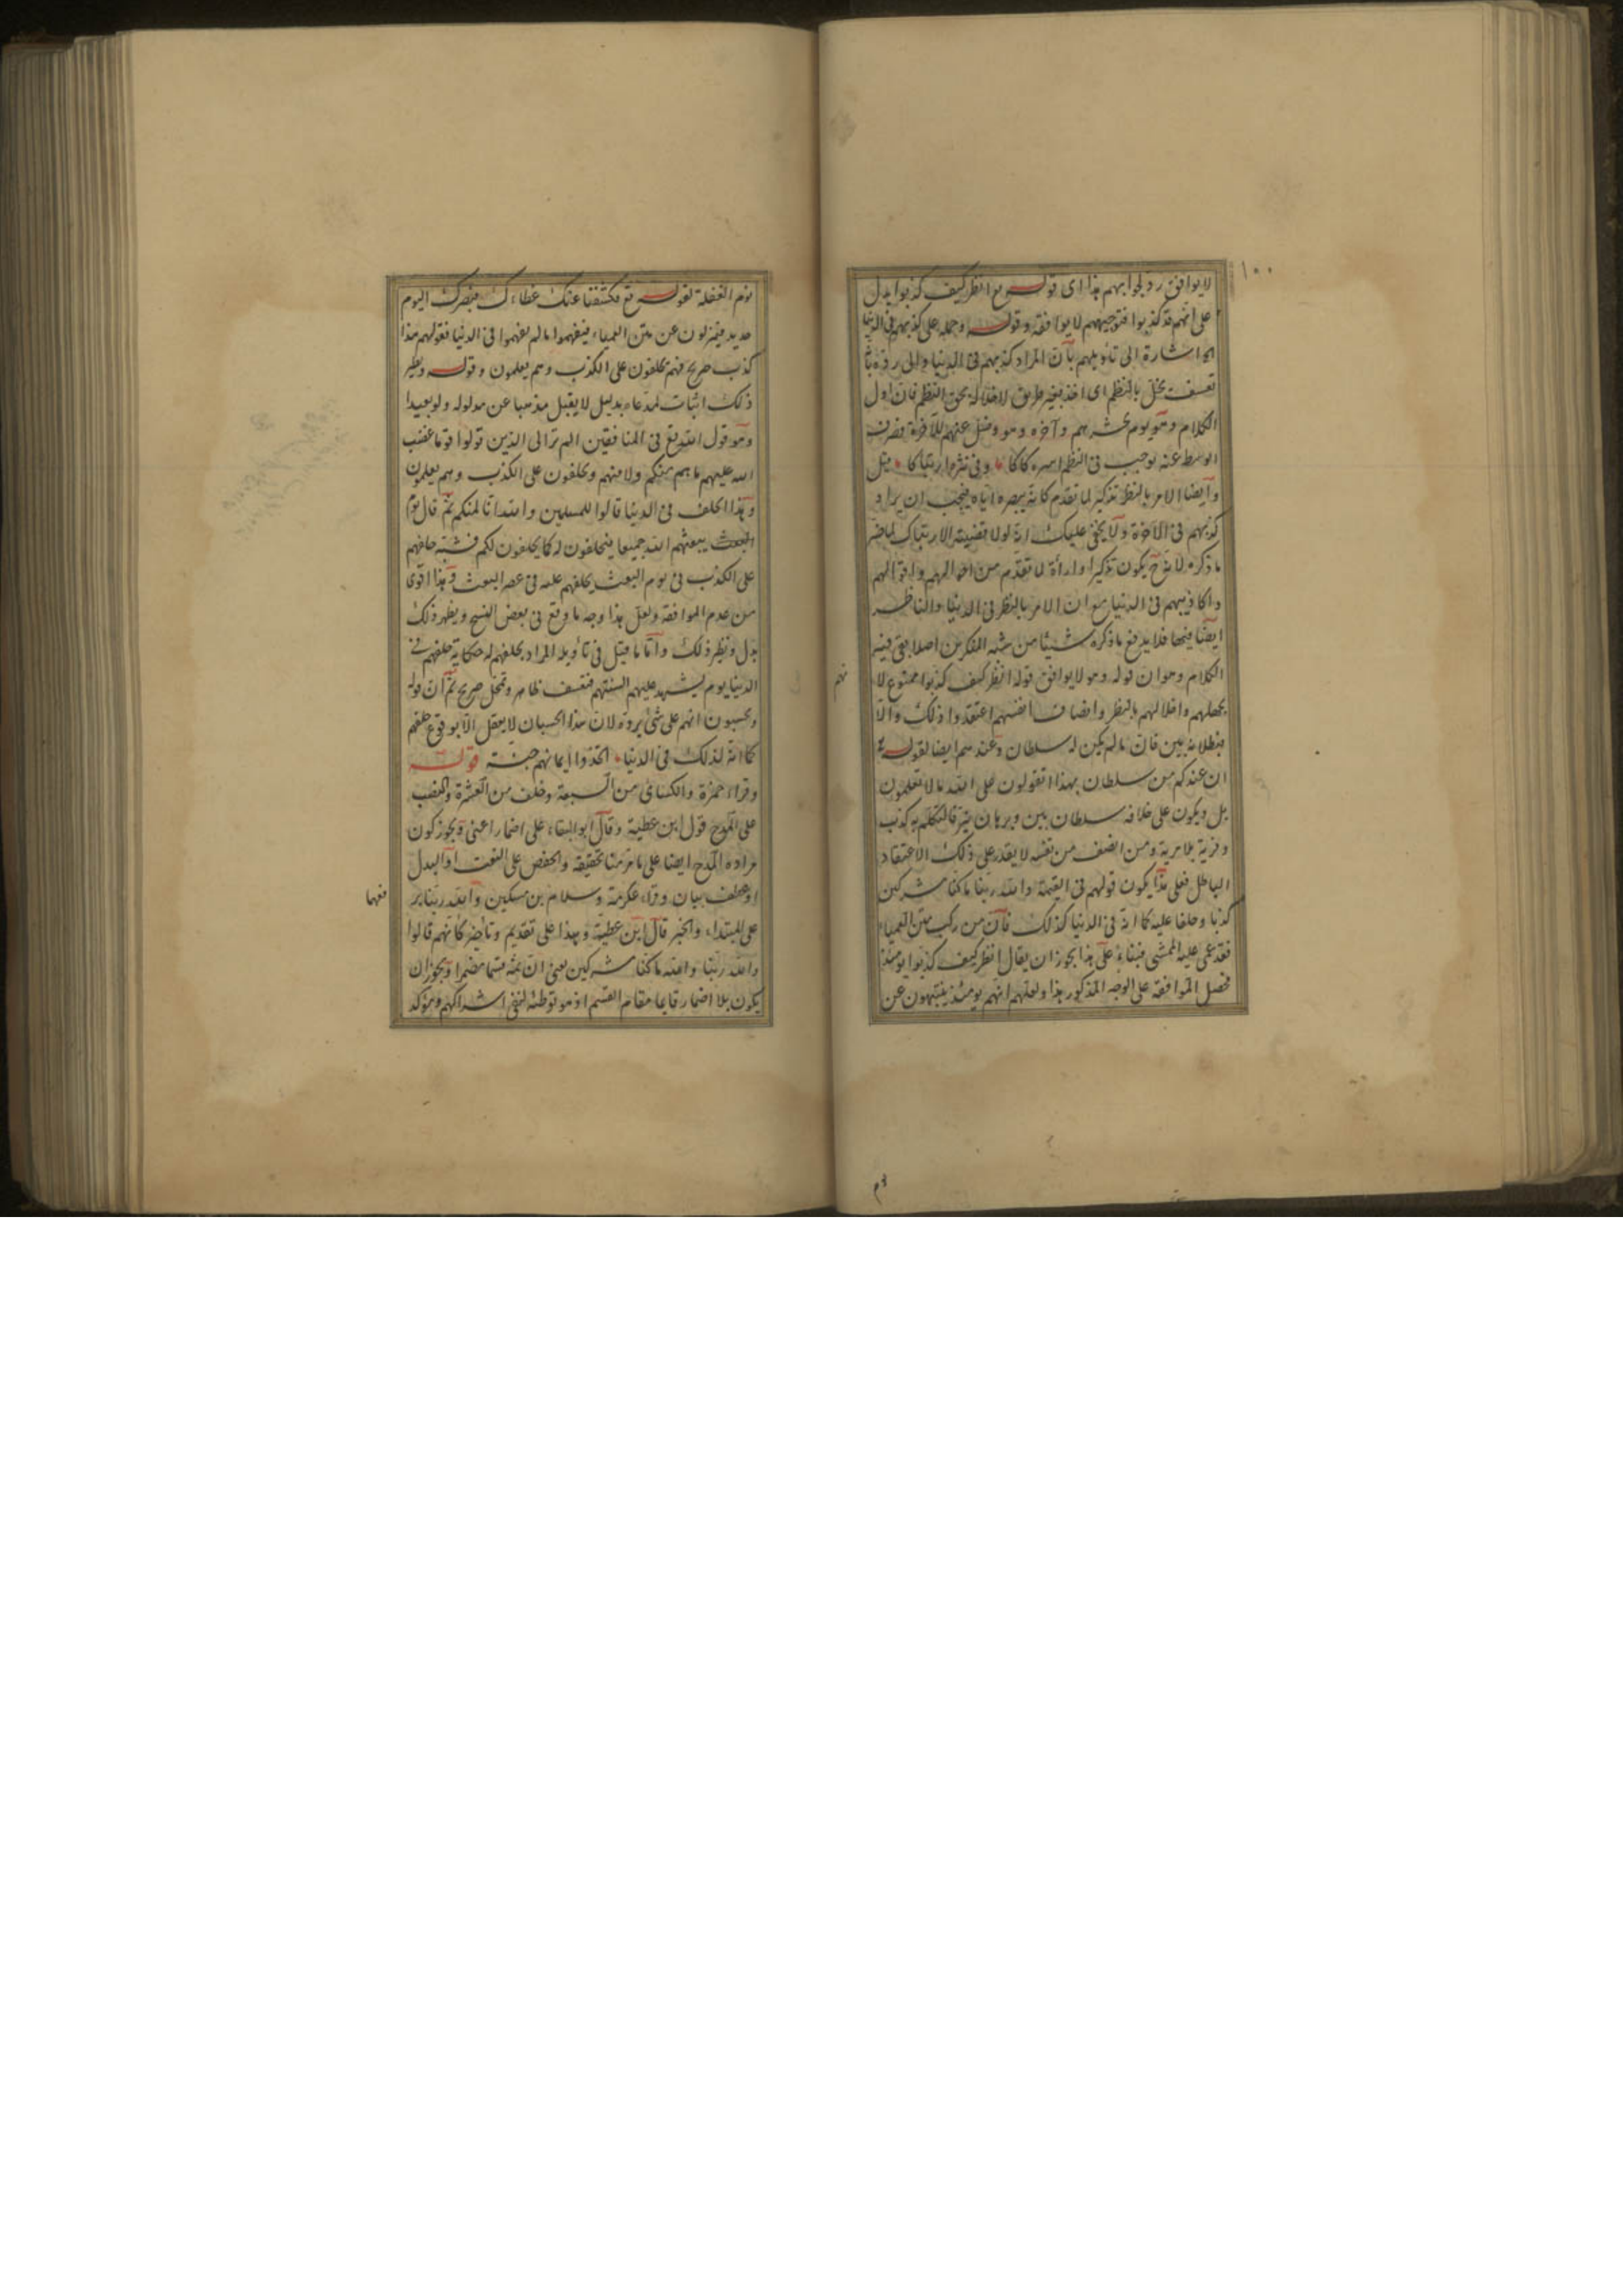 ١٠٠
لا يوافق رد لجوابهم هذا اى قوله تع انظر كيف كذبوا يدل
على انهم قد كذبوا فتوجيههم لا يوافقه وقوله وحمله على كذبهم فى الدنيا
الخ اشارة الى تاويلهم بان المراد كذبهم فى الدنيا والى رده بانه
تعسف يخل بالنظم اى اخذ بغير طريق لاخلاله بحق النظم فان اول
الكلام وهو يوم نحشرهم وآخره وهو وضل عنهم للآخرة فصرف
الوسط عنه يوجب فى النظم وفى نثره ارتباكا قيل
وايضا الامر بالنظر تذكير لما تقدم كانه يبصره اياه فيجب ان يراد
كذبهم فى الآخرة ولا يخفى عليك انه لولا قضية الارتباك لما ضر
ما ذكره لانه ح يكون تذكيرا واراءة لما تقدم من احوالهم واقوالهم
واكاذيبهم فى الدنيا مع ان الامر بالنظر فى الدنيا والناظر
ايضا فيها فلا يدفع ما ذكره شيئا من شبه المنكرين اصلا بقى فيه
الكلام وهو ان قوله وهو لا يوافق قوله انظر كيف كذبوا ممنوع لا
بجهلهم واخلالهم بالنظر وانصاف انفسهم اعتقدوا ذلك والا
فبطلانه بين فان ما لم يكن له سلطان وعندهم ايضا لقوله تع
ان عندكم من سلطان بهذا اتقولون على الله ما لا تعلمون
بل ويكون على خلافه سلطان بين وبرهان نير فالتكلم به كذب
وفرية بلا مرية ومن انصف من نفسه لا يقدر على ذلك الاعتقاد
الباطل فعلى هذا يكون قولهم فى القيمة والله ربنا ما كنا مشركين
كذبا وحلفا عليه كما انه فى الدنيا كذلك فان من ركب متن العمياء
فقد عمى عليه الممشى فبناء على هذا يجوز ان يقال انظر كيف كذبوا يومئذ
فحصل الموافقة على الوجه المذكور هذا ولعلهم انهم يومئذ ينتبهون عن
نوم الغفلة لقوله تع فكشفنا عنك غطاءك فبصرك اليوم
حديد فينزلون عن متن العمياء فيفهموا ما لم يفهموا فى الدنيا فقولهم هذا
كذب صريح فهم يحلفون على الكذب وهم يعلمون وقوله ونظير
ذلك اثبات لمدعاه بدليل لا يقبل مذهبا عن مدلوله ولو بعيدا
وهو قول الله تع فى المنافقين الم تر الى الذين تولوا قوما غضب
الله عليهم ما هم منكم ولا منهم ويحلفون على الكذب وهم يعلمون
وهذا الحلف فى الدنيا قالوا للمسلمين والله انا لمنكم ثم قال يوم
البعث يبعثهم الله جميعا فيحلفون له كما يحلفون لكم فشبه حلفهم
على الكذب فى يوم البعث بحلفهم عليه فى عصر البعث وهذا اقوى
من عدم الموافقة ولعل هذا وجه ما وقع فى بعض النسخ ويظهر ذلك
بدل ونظير ذلك واما ما قيل فى تاويله المراد بحلفهم له حكاية حلفهم فى
الدنيا يوم يشهد عليهم السنتهم فتعسف ظاهر وتمحل صريح ثم ان قوله
ويحسبون انهم على شئ يرده لان هذا الحسبان لا يعقل الا بوقوع حلفهم
كما انه لذلك فى الدنيا اتخذوا ايمانهم جنة قوله
وقراء حمزة والكسائ من السبعة وخلف من العشرة والنصب
على المدح قول ابن عطية وقال ابو البقاء على اضمار اعنى ويجوز كون
مراده المدح ايضا على ما مر منا تحقيقه والخفض على النعت او البدل
او عطف بيان وقراء عكرمة وسلام بن مسكين والله ربنا بر
فعهما
على المبتداء والخبر قال ابن عطية وهذا على تقديم وتاخير كانهم قالوا
والله ربنا والله ما كنا مشركين يعنى ان ثمه قسما مضمرا ويجوز ان
يكون بلا اضمار قايما مقام القسم اذ هو توطئة لنفى اشراكهم ومؤكد